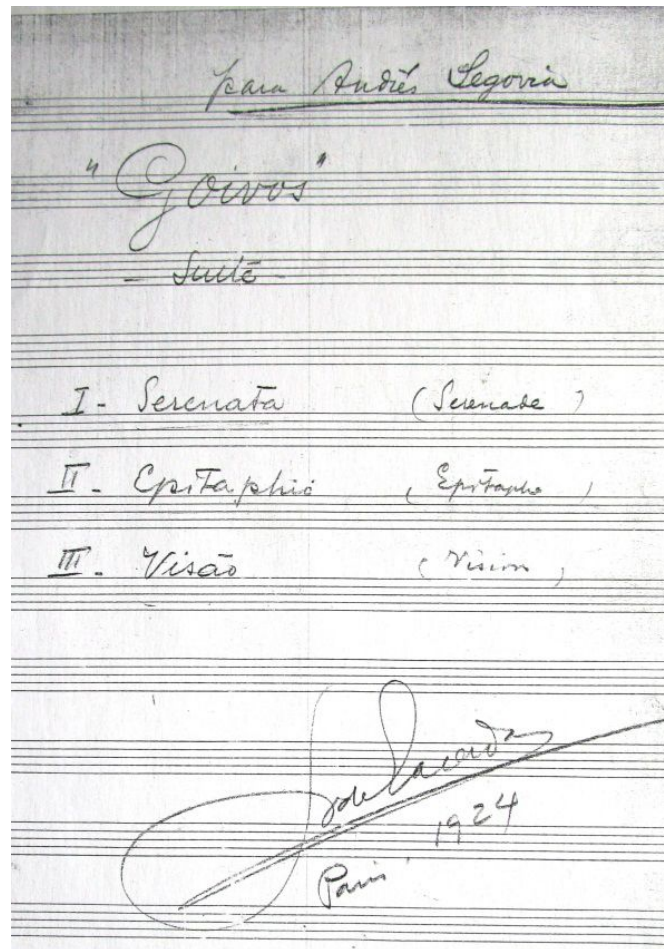 para Andrés Segovia
"Goivos"
- Suite -
I - Serenata (Serenade)
II - Epitaphio (Epitaphe)
III - Visão (Vision)
F. de Lacerda
Paris 1924